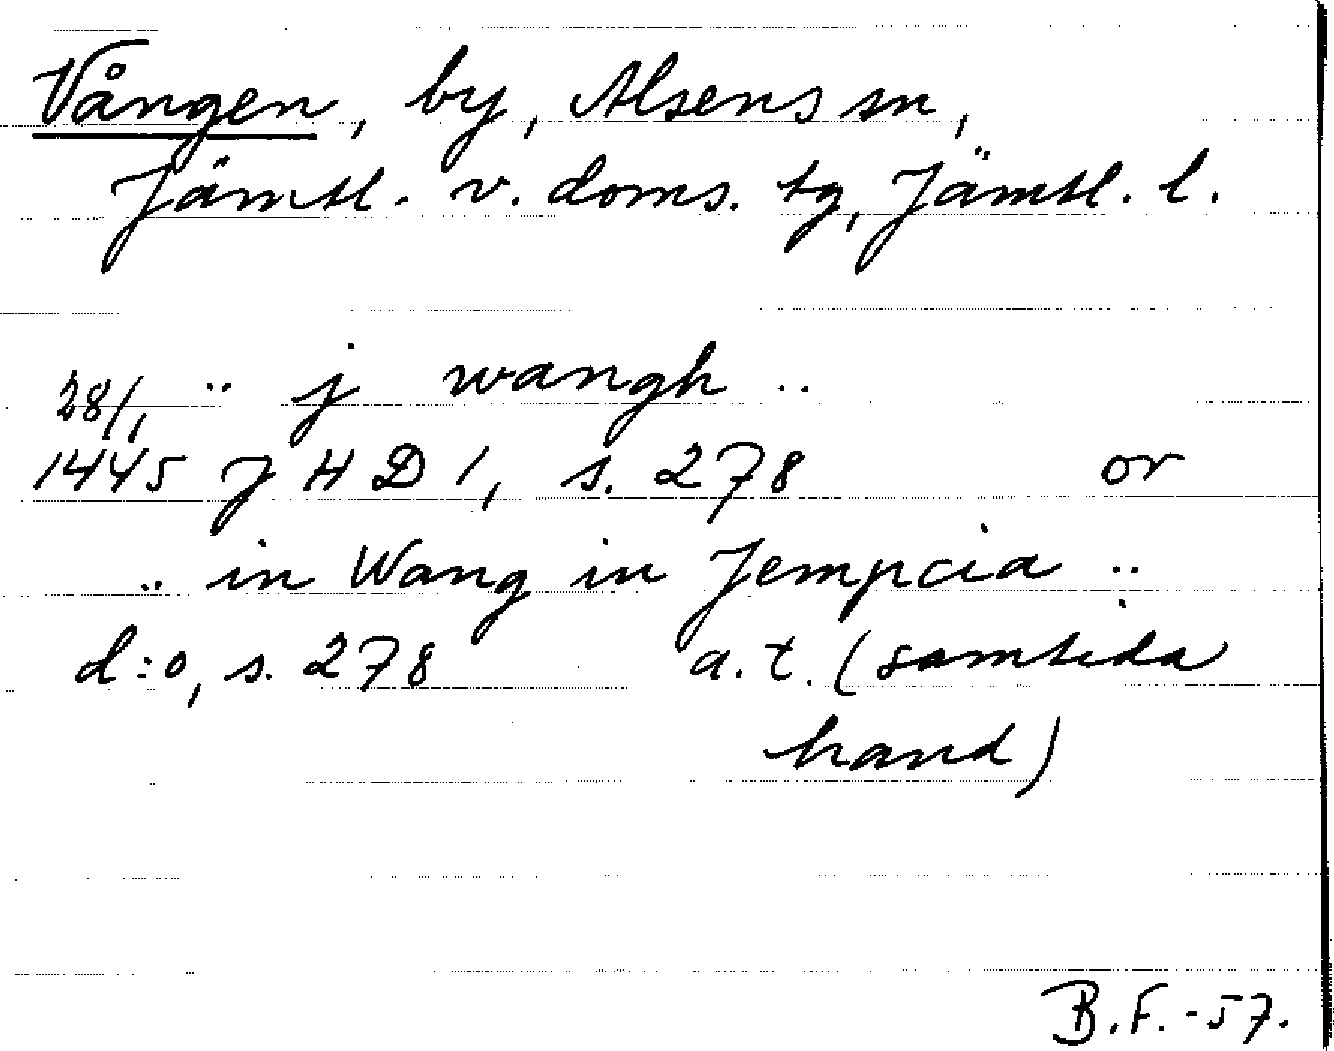 Vången, by, Alsens sn,
Jämtl. v. doms. tg, Jämtl. l.
28/1 .. j wangh ..
1445 JHD 1, s. 278 or
.. in Wang in Jempcia ..
d:o, s. 278 a.t. (samtida
hand)
B.F.-57.